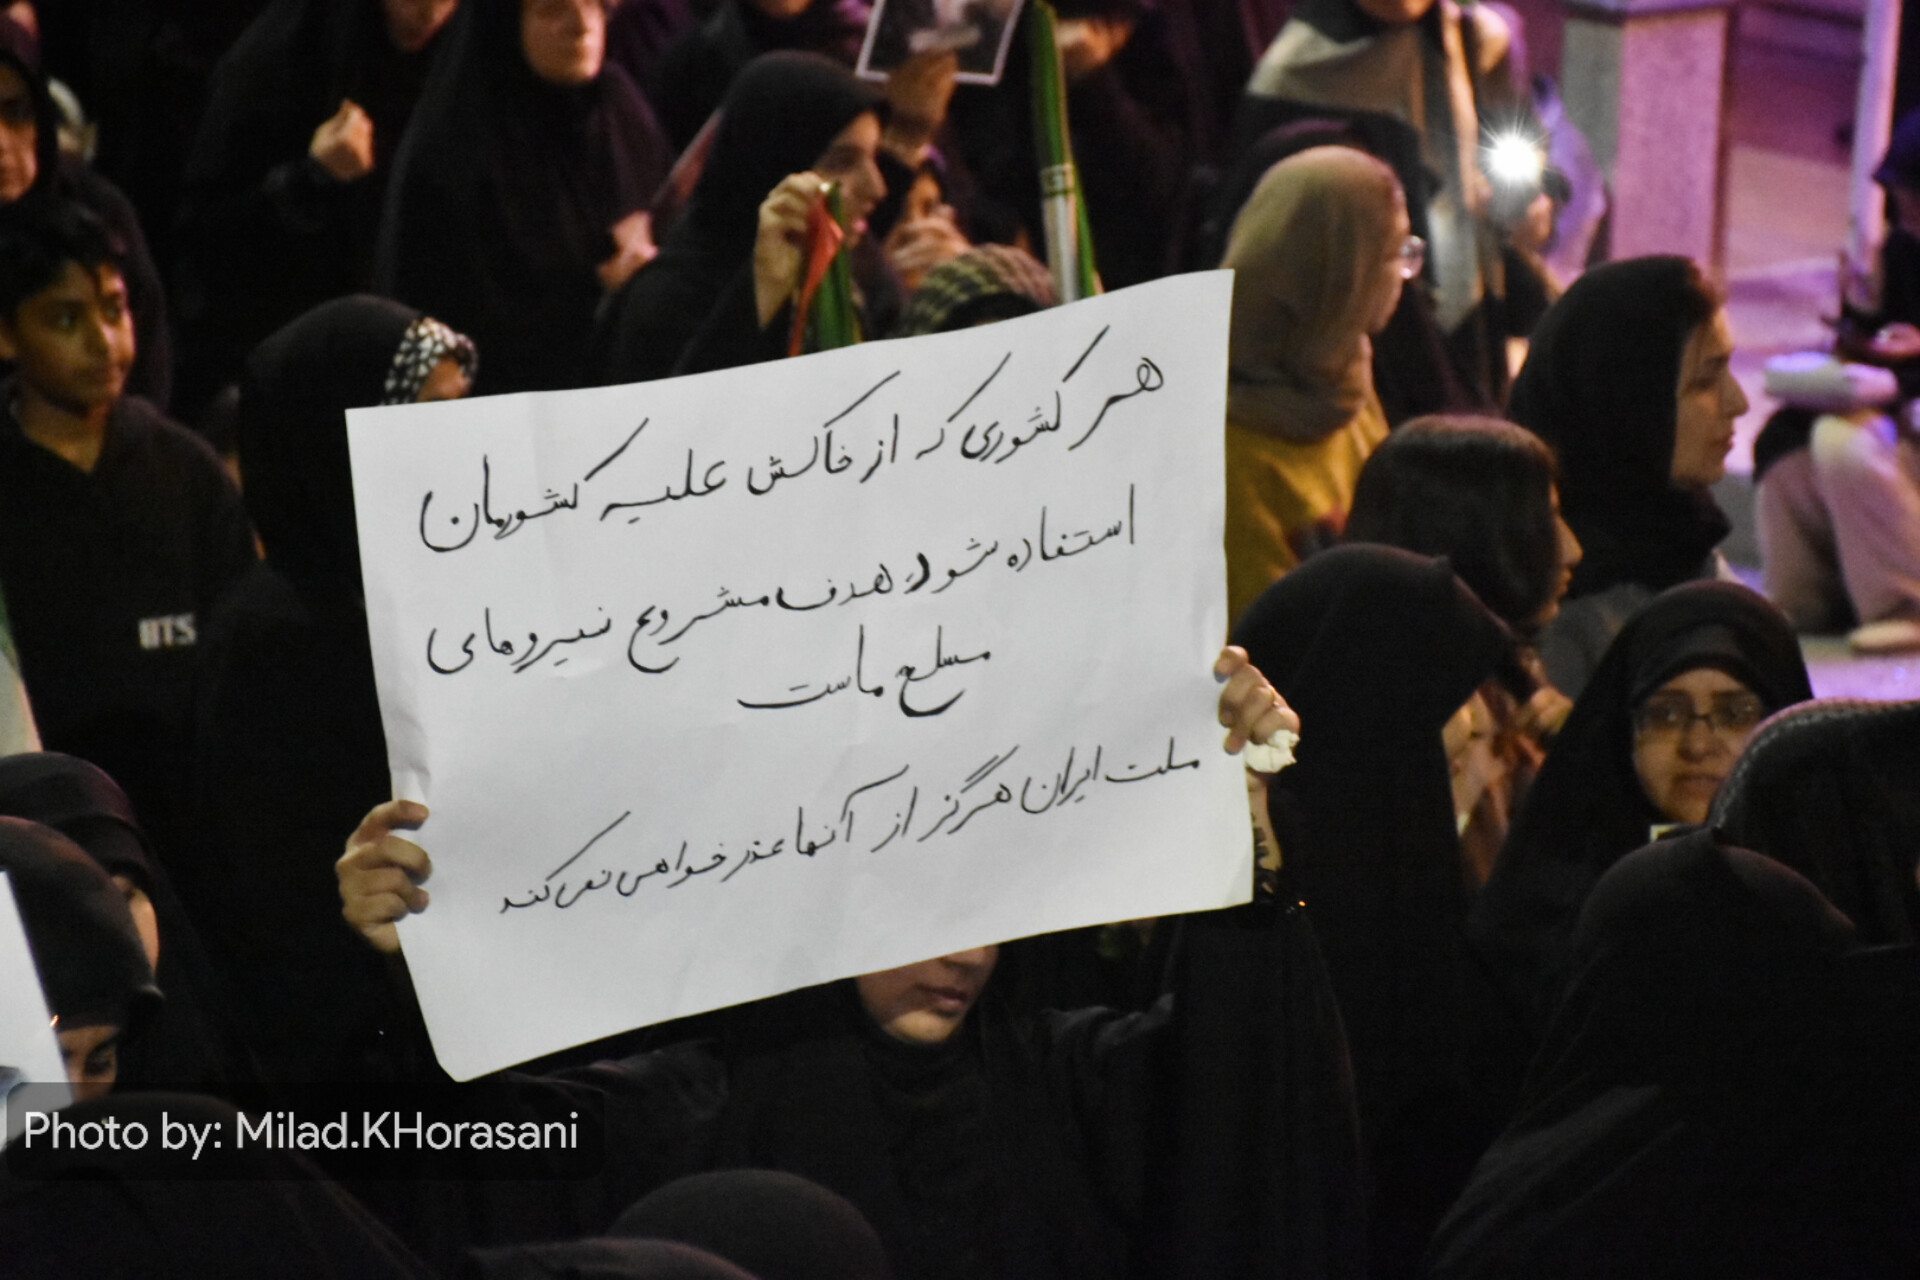 هر کشوری که از خاکش علیه کشورمان
استفاده شود، هدف مشروع نیروهای
مسلح ماست
ملت ایران هرگز از آنها عذرخواهی نمی‌کند
BTS
Photo by: Milad.KHorasani